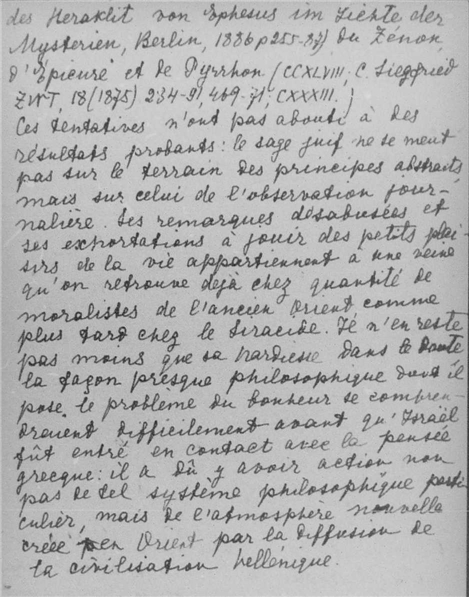 des Heraklit von Ephesus im Lichte der
Mysterien, Berlin, 1886 p 255-87) du Zénon,
d'Épicure et de Pyrrhon (CCXLVIII; C. Siegfried
ZWT, 18 (1875) 284-91, 469-71; CXXXIII.)
Ces tentatives n'ont pas abouti à des
résultats probants: le sage juif ne se meut
pas sur le terrain des principes abstraits
mais sur celui de l'observation jour-
nalière. Ses remarques désabusées et
ses exhortations à jouir des petits plai-
sirs de la vie appartiennent à une veine
qu'on retrouve déjà chez quantité de
moralistes de l'ancien Orient comme
plus tard chez le Siracide. Il n'en reste
pas moins que sa hardiesse dans le doute
la façon presque philosophique dont il
pose le problème du bonheur se compren-
draient difficilement avant qu'Israël
fût entré en contact avec la pensée
grecque: il a dû y avoir action non
pas de tel système philosophique parti-
culier, mais de l'atmosphère nouvelle
créée en Orient par la diffusion de
la civilisation hellénique.